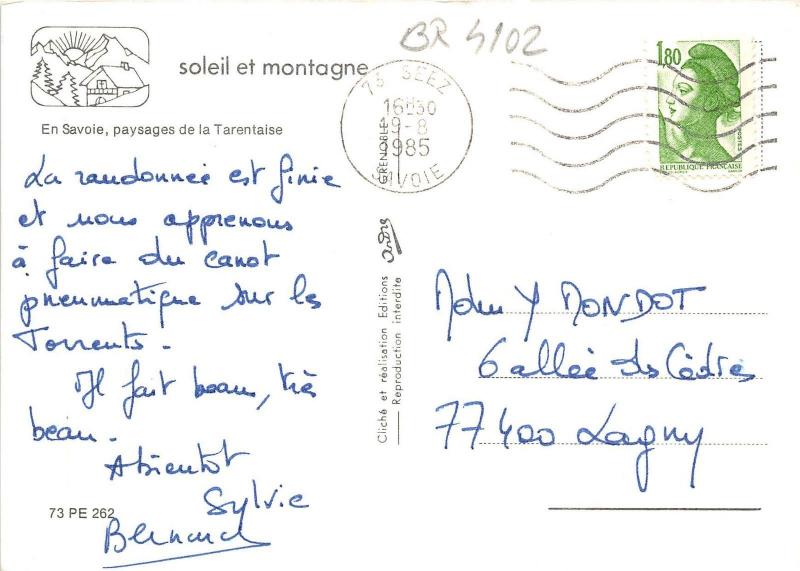 BR 4102
soleil et montagne
73 SEEZ
16H30
19-8
1985
SAVOIE
GRENOBLE
1,80
POSTES
REPUBLIQUE FRANÇAISE
En Savoie, paysages de la Tarentaise
La randonnée est finie
et nous apprenons
à faire du canot
pneumatique sur les
Torrents.
Il fait beau, très
beau.
Abientot
Sylvie
Bernard
73 PE 262
Cliché et réalisation Editions André
Reproduction interdite
Mdm Y MONDOT
6 allée des Cèdres
77400 Lagny